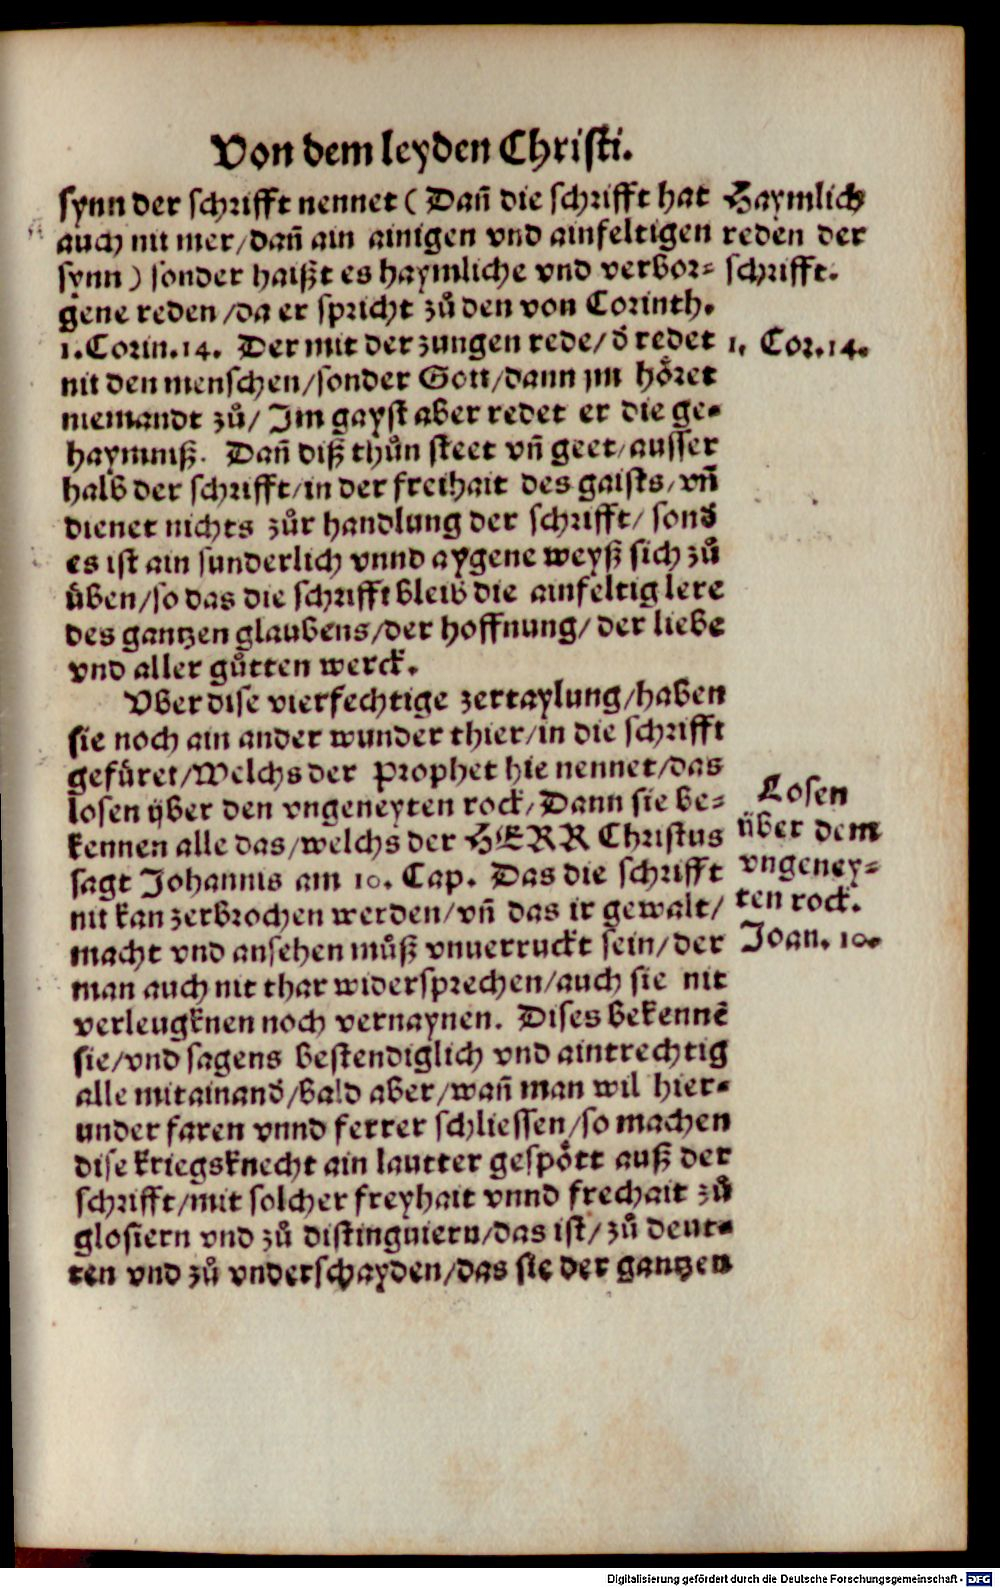 Von dem leyden Christi.
synn der schrifft nennet ( Dañ die schrifft hat
auch nit mer/dañ ain ainigen vnd ainfeltigen
synn ) sonder haißt es haymliche vnd verbor⸗
gene reden/da er spricht zů den von Corinth.
1.Corin.14. Der mit der zungen rede/ d̃ redet
nit den menschen/sonder Gott/dann jm höret
niemandt zů/ Im gayst aber redet er die ge⸗
haymniß. Dañ diß thůn steet vñ geet/ausser
halb der schrifft/in der freihait des gaists/vñ
dienet nichts zůr handlung der schrifft/ sond̃
es ist ain sunderlich vnnd aygene weyß sich zů
üben/so das die schrifft bleib die ainfeltig lere
des gantzen glaubens/der hoffnung/ der liebe
vnd aller gůtten werck.
Vber dise vierfechtige zertaylung/haben
sie noch ain ander wunder thier/in die schrifft
gefüret/Welchs der Prophet hie nennet/das
losen über den vngeneyten rock/Dann sie be⸗
kennen alle das/welchs der HERR Christus
sagt Johannis am 10. Cap. Das die schrifft
nit kan zerbrochen werden/vñ das ir gewalt/
macht vnd ansehen můß vnuerruckt sein/der
man auch nit thar widersprechen/auch sie nit
verleugknen noch vernaynen. Dises bekennẽ
sie/vnd sagens bestendiglich vnd aintrechtig
alle mitainand̃/bald aber/wañ man wil hier⸗
under faren vnnd ferrer schliessen/so machen
dise kriegsknecht ain lautter gespött auß der
schrifft/mit solcher freyhait vnnd frechait zů
glosiern vnd zů distinguiern/das ist/ zů deut⸗
ten vnd zů vnderschayden/das sie der gantzen
Haymlich
reden der
schrifft.
1. Cor.14.
Losen
über dem
vngeney⸗
ten rock.
Joan. 10.
Digitalisierung gefördert durch die Deutsche Forschungsgemeinschaft - DFG